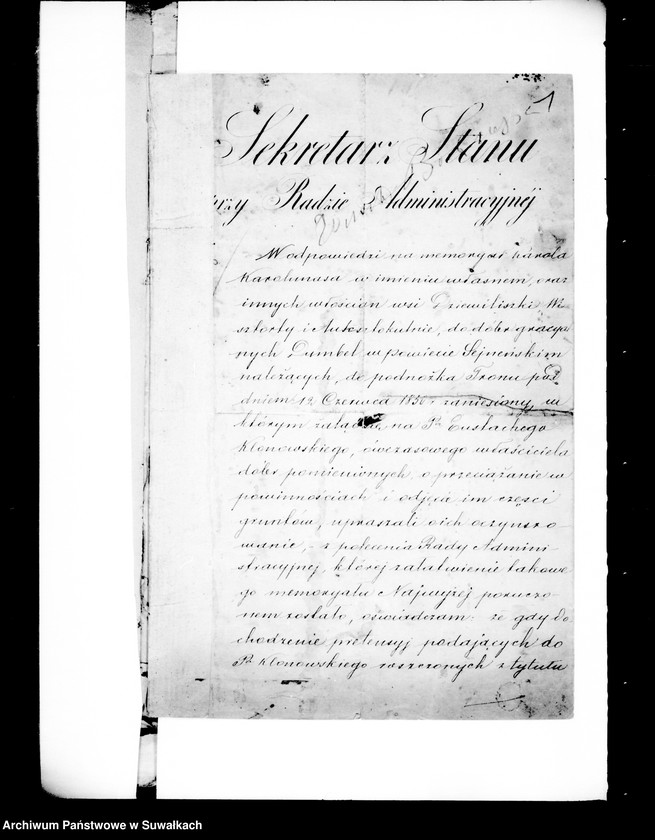 Sekretarz Stanu
przy Radzie Administracyjnéj
W odpowiedzi na memoryał Karola
w imieniu własnem, oraz
innych włościan wsi Dziewiliszki
i lokulnie, do dóbr
nych Dumbel w powiecie Sejneńskim
należących, do podnóżka Tronu pod
dniem 12 Czerwca zaniesiony, w
którym na Pa Eustachego
Klonowskiego, ówczasowego właściciela
dóbr pomienionych, o przeciążanie w
powinnościach i odjęcie im części
gruntów, upraszali o ich oczynszo
wanie, - z polecenia Rady Admini
stracyjnej, której załatwienie takowe
go memoryału Najwyżej poruczo
nem zostało, oświadczam: że gdy do
chodzenie pretensyj podających do
Pa Klonowskiego roszczonych z tytułu
Archiwum Państwowe w Suwałkach